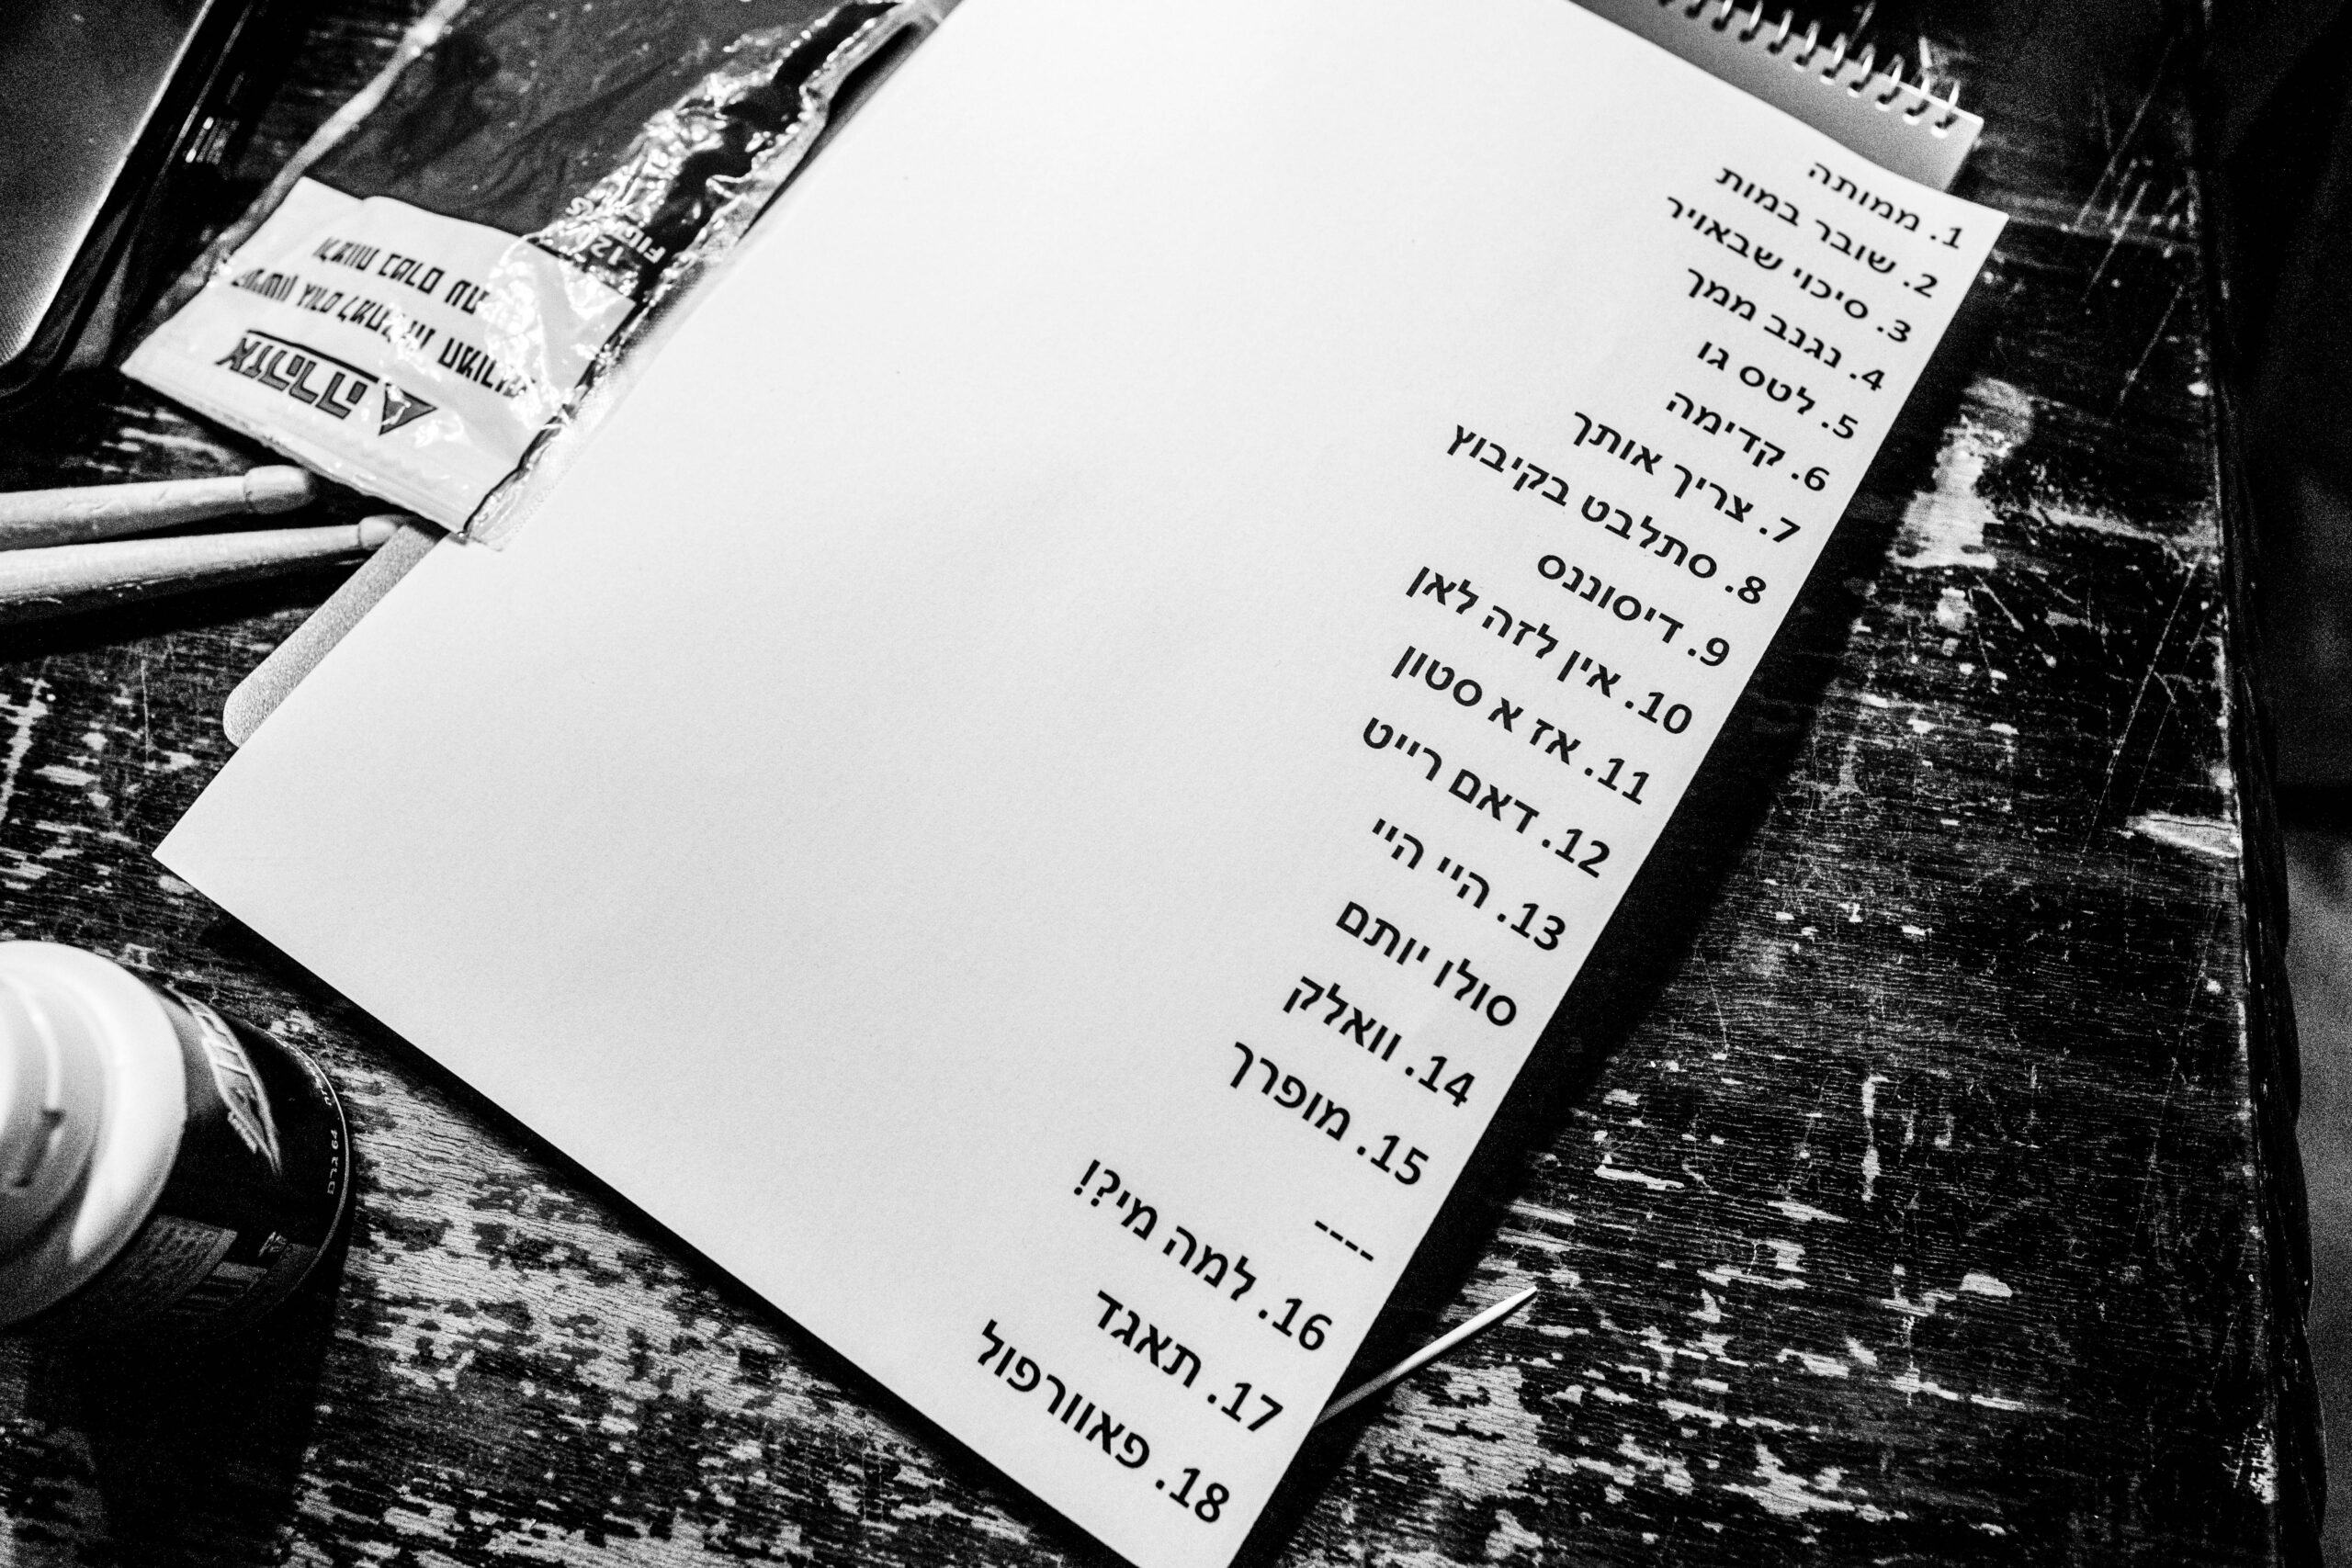 1. ממותה
2. שובר במות
3. סיכוי שבאויר
4. נגנב ממך
5. לטס גו
6. קדימה
7. צריך אותך
8. סתלבט בקיבוץ
9. דיסוננס
10. אין לזה לאן
11. אז א סטון
12. דאם רייט
13. היי היי
סולו יותם
14. וואלק
15. מופרך
----
16. למה מי?!
17. תאגד
18. פאוורפול